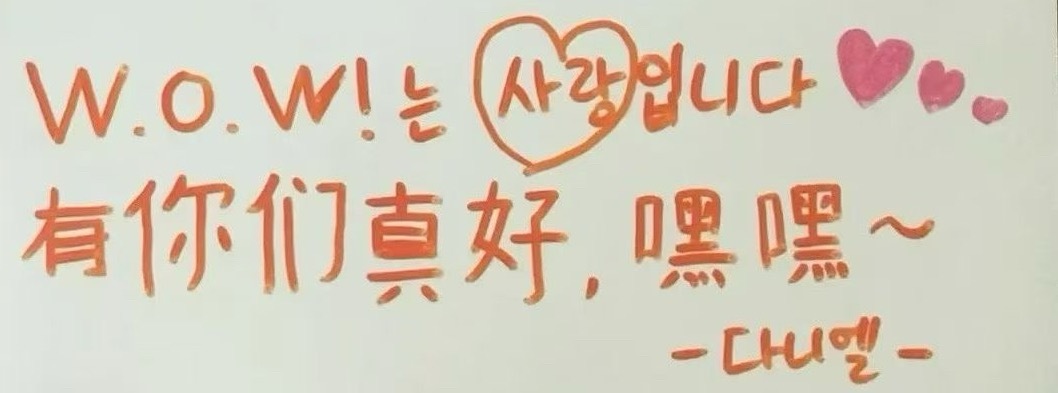 W.O.W!는 사랑입니다
有你们真好,嘿嘿~
-다니엘-